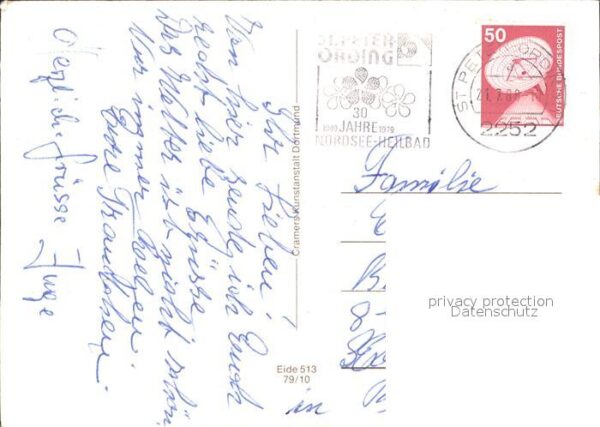 Ihr Lieben!
Von hier sende ich Euch
recht liebe Grüsse
Das Wetter ist nicht schön
Nur immer Regen.
Eure
Herzliche Grüsse Inge
Cramers Kunstanstalt Dortmund
Eide 513
79/10
ST. PETER
ORDING
30
1949 JAHRE 1979
NORDSEE-HEILBAD
ST PETER-ORDING
2252
50
DEUTSCHE BUNDESPOST
Familie
E
B
8-
in
privacy protection
Datenschutz